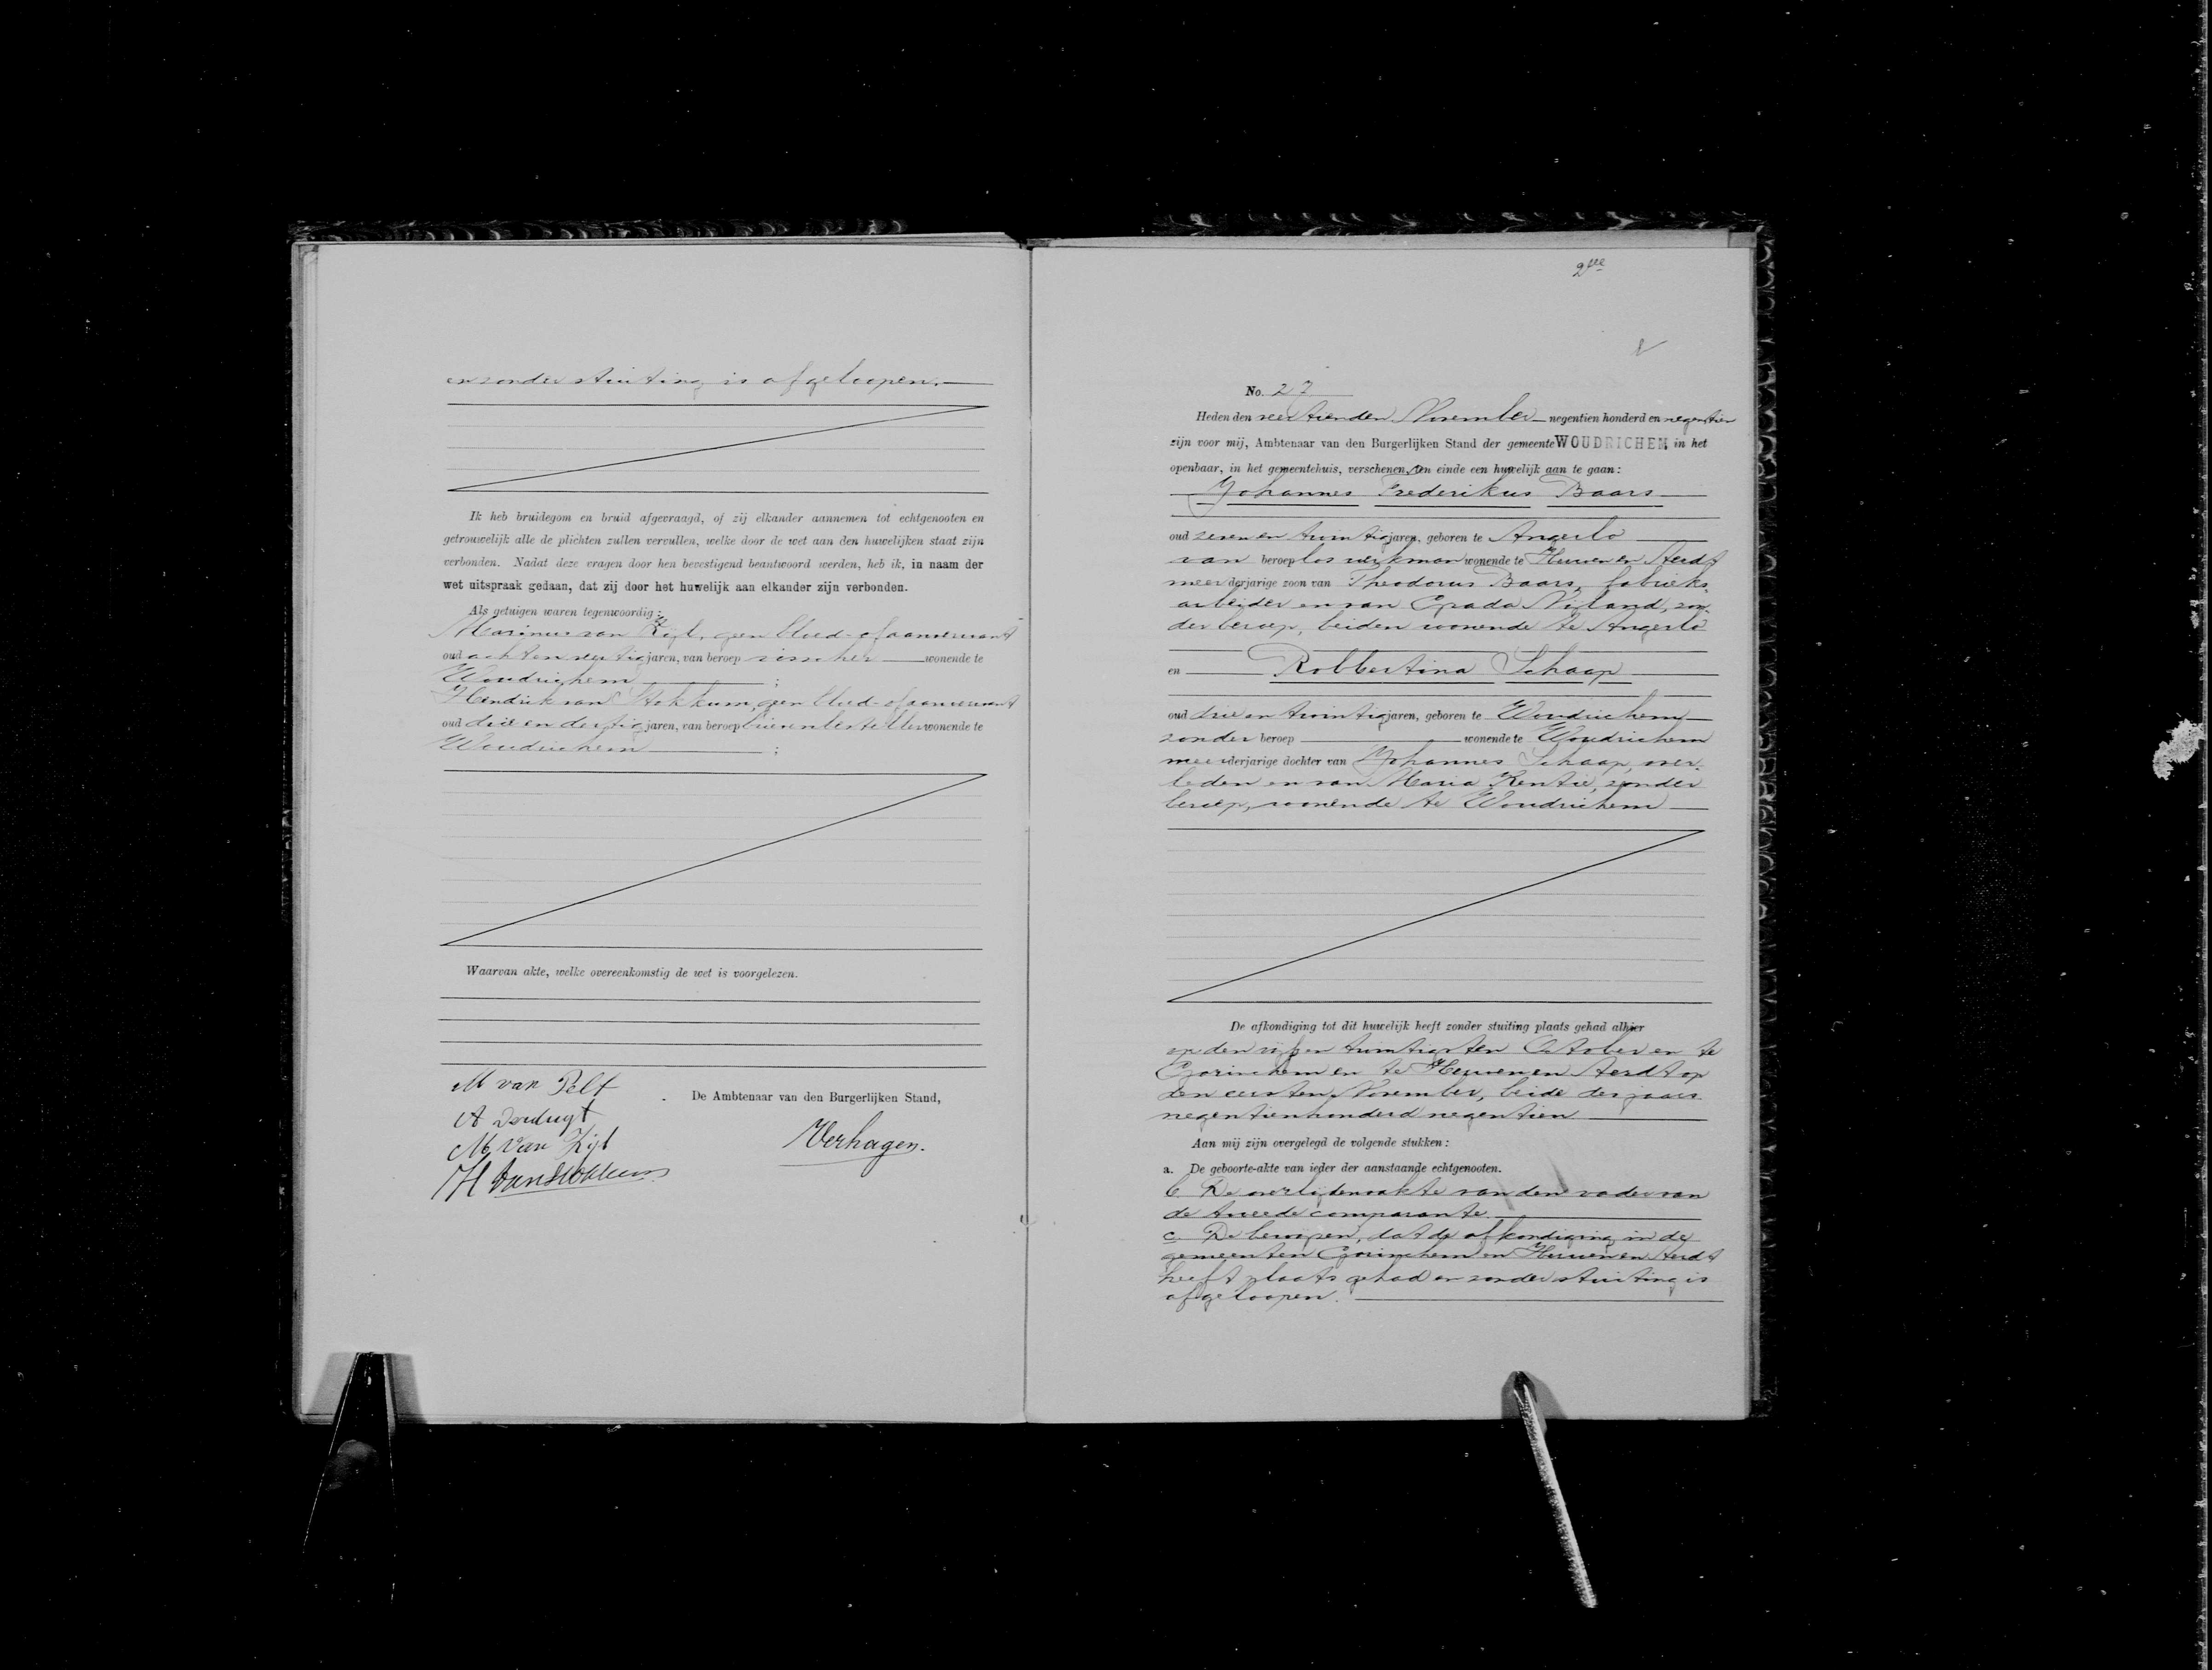 en zonder stuiting is afgeloopen.
Ik heb bruidegom en bruid afgevraagd, of zij elkander aannemen tot echtgenooten en
getrouwelijk alle de plichten zullen vervullen, welke door de wet aan den huwelijken staat zijn
verbonden. Nadat deze vragen door hen bevestigend beantwoord werden, heb ik, in naam der
wet uitspraak gedaan, dat zij door het huwelijk aan elkander zijn verbonden.
Als getuigen waren tegenwoordig:
Marinus van Zijl, geen bloed- of aanverwant
oud acht en veertig jaren, van beroep visscher wonende te
Woudrichem ;
Hendrik van Stokkum, geen bloed- of aanverwant
oud drie en dertig jaren, van beroep brievenbesteller wonende te
Woudrichem ;
Waarvan akte, welke overeenkomstig de wet is voorgelezen.
M van Pelt
De Ambtenaar van den Burgerlijken Stand,
A
M. Van Zijl
Verhagen.
H van Stokkum
2de
No. 27
Heden den veertienden November negentien honderd en negentien
zijn voor mij, Ambtenaar van den Burgerlijken Stand der gemeente WOUDRICHEM in het
openbaar, in het gemeentehuis, verschenen, ten einde een huwelijk aan te gaan:
Johannes Frederikus Baars
oud zeven en twintig jaren, geboren te Angerlo
van beroep los werkman wonende te Herwen en Aerdt
meerderjarige zoon van Theodorus Baars, fabrieks-
arbeider en van Grada Nijland, zon-
der beroep, beiden wonende te Angerlo
en Robbertina Schaap
oud drie en twintig jaren, geboren te Woudrichem
zonder beroep wonende te Woudrichem
meerderjarige dochter van Johannes Schaap, over-
leden en van Maria Kentie, zonder
beroep, wonende te Woudrichem
De afkondiging tot dit huwelijk heeft zonder stuiting plaats gehad alhier
op den vijf en twintigsten October en te
Gorinchem en te Herwen en Aerdt op
den eersten November, beide des jaars
negentienhonderd negentien
Aan mij zijn overgelegd de volgende stukken:
a. De geboorte-akte van ieder der aanstaande echtgenooten.
b. De overlijdensakte van den vader van
de tweede comparante.
c. De bewijzen, dat de afkondiging in de
gemeenten Gorinchem en Herwen en Aerdt
heeft plaats gehad en zonder stuiting is
afgeloopen.